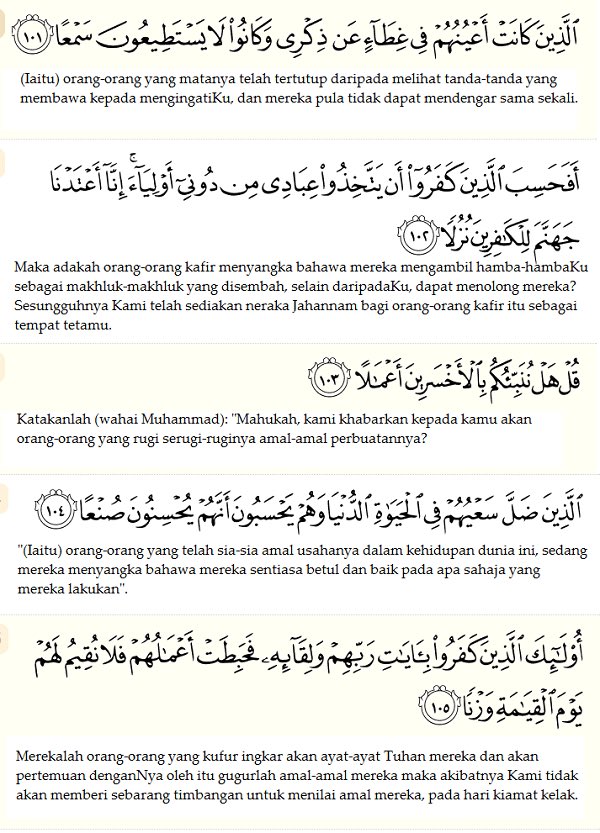 ٱلَّذِينَ كَانَتۡ أَعۡيُنُهُمۡ فِي غِطَآءٍ عَن ذِكۡرِي وَكَانُواْ لَا يَسۡتَطِيعُونَ سَمۡعًا ١٠١
(Iaitu) orang-orang yang matanya telah tertutup daripada melihat tanda-tanda yang
membawa kepada mengingatiKu, dan mereka pula tidak dapat mendengar sama sekali.
أَفَحَسِبَ ٱلَّذِينَ كَفَرُوٓاْ أَن يَتَّخِذُواْ عِبَادِي مِن دُونِيٓ أَوۡلِيَآءَۚ إِنَّآ أَعۡتَدۡنَا
جَهَنَّمَ لِلۡكَٰفِرِينَ نُزُلٗا ١٠٢
Maka adakah orang-orang kafir menyangka bahawa mereka mengambil hamba-hambaKu
sebagai makhluk-makhluk yang disembah, selain daripadaKu, dapat menolong mereka?
Sesungguhnya Kami telah sediakan neraka Jahannam bagi orang-orang kafir itu sebagai
tempat tetamu.
قُلۡ هَلۡ نُنَبِّئُكُم بِٱلۡأَخۡسَرِينَ أَعۡمَٰلًا ١٠٣
Katakanlah (wahai Muhammad): "Mahukah, kami khabarkan kepada kamu akan
orang-orang yang rugi serugi-ruginya amal-amal perbuatannya?
ٱلَّذِينَ ضَلَّ سَعۡيُهُمۡ فِي ٱلۡحَيَوٰةِ ٱلدُّنۡيَا وَهُمۡ يَحۡسَبُونَ أَنَّهُمۡ يُحۡسِنُونَ صُنۡعًا ١٠٤
"(Iaitu) orang-orang yang telah sia-sia amal usahanya dalam kehidupan dunia ini, sedang
mereka menyangka bahawa mereka sentiasa betul dan baik pada apa sahaja yang
mereka lakukan".
أُوْلَٰٓئِكَ ٱلَّذِينَ كَفَرُواْ بِـَٔايَٰتِ رَبِّهِمۡ وَلِقَآئِهِۦ فَحَبِطَتۡ أَعۡمَٰلُهُمۡ فَلَا نُقِيمُ لَهُمۡ
يَوۡمَ ٱلۡقِيَٰمَةِ وَزۡنٗا ١٠٥
Merekalah orang-orang yang kufur ingkar akan ayat-ayat Tuhan mereka dan akan
pertemuan denganNya oleh itu gugurlah amal-amal mereka maka akibatnya Kami tidak
akan memberi sebarang timbangan untuk menilai amal mereka, pada hari kiamat kelak.